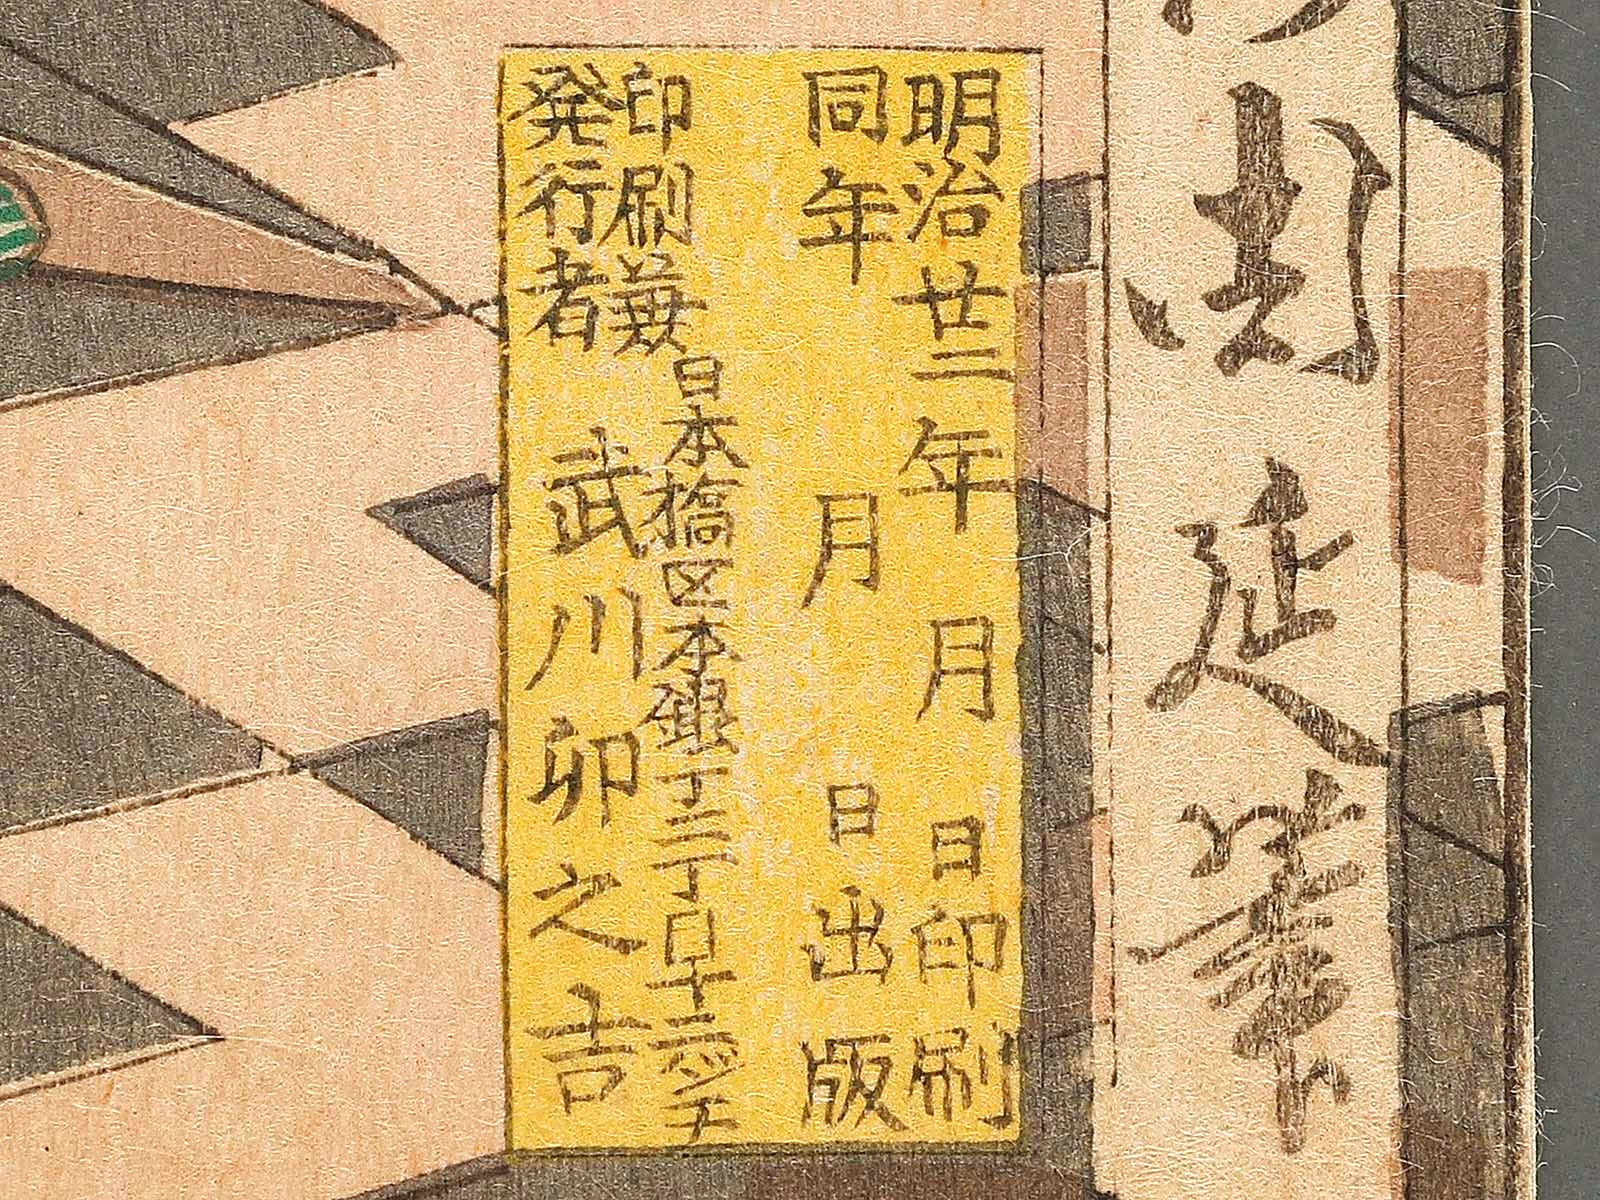 周延筆
明治廿二年 月 日印刷
同年 月 日出版
日本橋区本銀丁二丁目十二バンチ
印刷兼
発行者 武川卯之吉